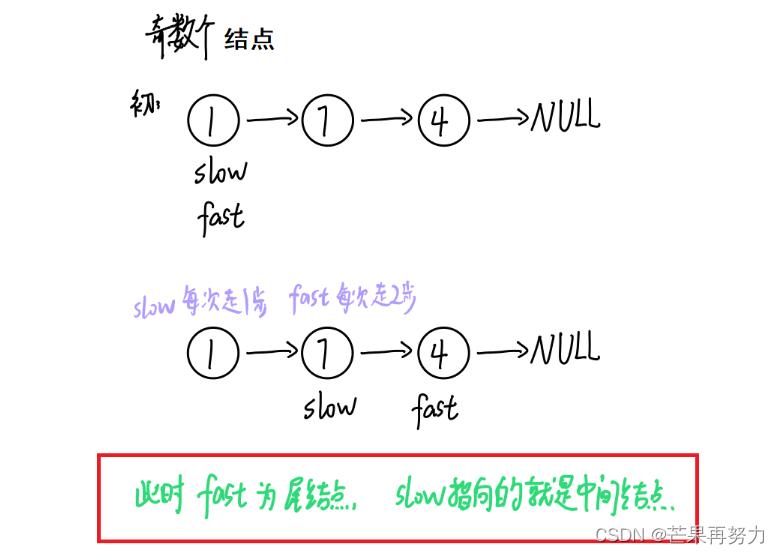 奇数个 结点
初: 1 7 4 NULL
slow
fast
slow 每次走1步 fast 每次走2步
1 7 4 NULL
slow fast
此时 fast 为 尾结点, slow指向的就是中间结点.
CSDN @芒果再努力